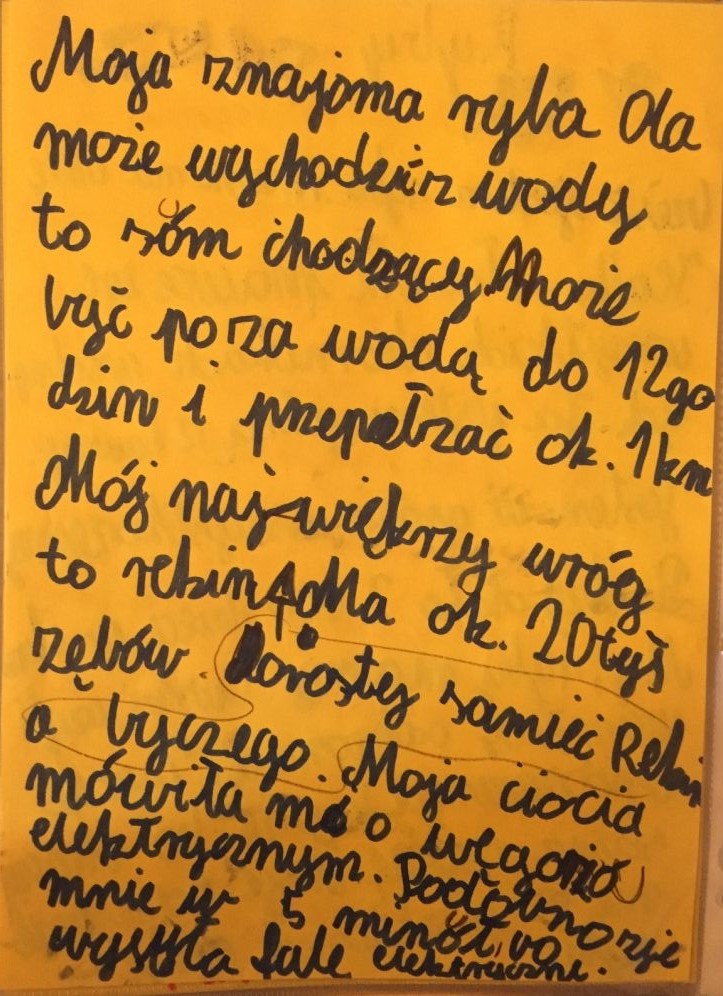 Moja znajoma ryba Ola
może wychodzić z wody
to sóm chodzący. Może
być po za wodą do 12 go
dzin i przepełzać ok. 1km
Mój naj większy wróg
to rekin. Ma ok. 20tyś
zębów Dorosłej samieć Reki
a byczego. Moja ciocia
mówiła mi o węgorzo
elektrycznym. Podówno zje
mnie w 5 minót, bo
wysyła fale elektryczne.